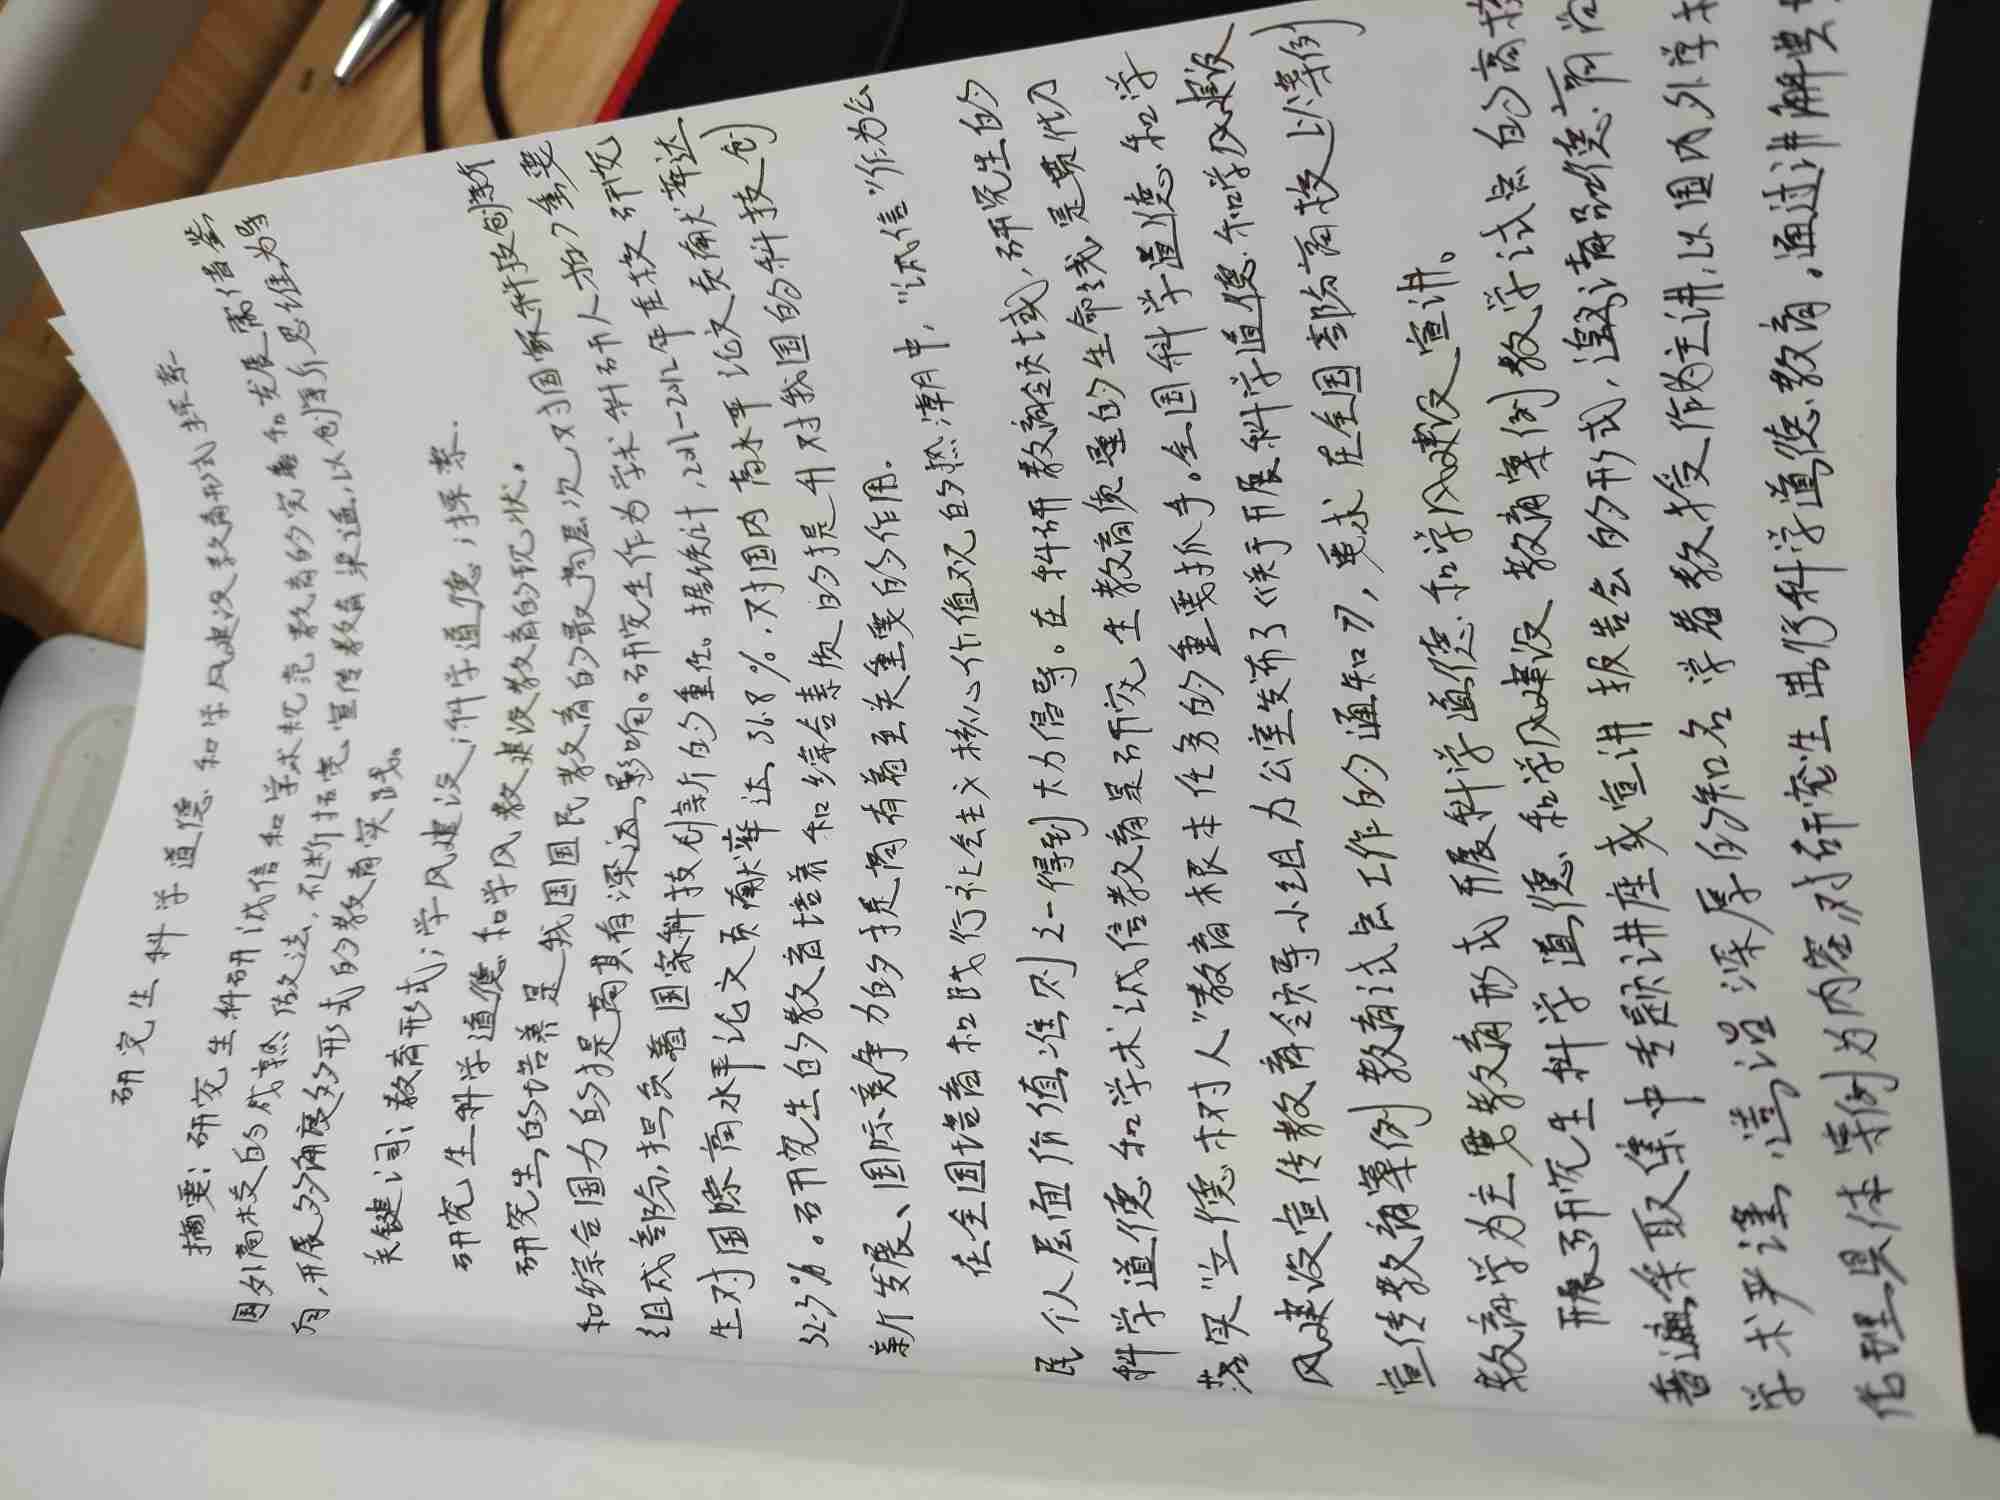 研究生科学道德和学风建设教育形式探索
摘要：研究生科研诚信和学术规范教育的完善和发展需借鉴
国外高校的成熟做法，不断拓宽宣传教育渠道，以创新思维为导
向，开展多角度多形式的教育实践。
关键词：教育形式；学风建设；科学道德；探索.
研究生科学道德和学风教建设教育的现状。
研究生的培养是我国国民教育的最高层次，对国家科技创新
和综合国力的提高具有深远影响。研究生作为学术科研人才的重要
组成部分，担负着国家科技创新的重任。据统计，2011-2012年在校研究
生对国际高水平论文贡献率达36.8%，对国内高水平论文贡献率达
32.3%。研究生的教育培养和综合素质的提升对我国的科技创
新发展、国际竞争力的提高有着至关重要的作用。
在全国培育和践行社会主义核心价值观的热潮中，“诚信”作为公
民个人层面价值准则之一得到大力倡导。在科研教育领域，研究生的
科学道德和学术诚信教育是研究生教育质量的生命线，是贯彻
落实“立德树人”教育根本任务的重要抓手。全国科学道德和学
风建设宣传教育领导小组办公室发布了《关于开展科学道德和学风建设
宣传教育案例教育试点工作的通知》，要求在全国部分高校以案例
教育学为主要教育形式开展科学道德和学风建设宣讲。
开展研究生科学道德和学风建设教育案例教学试点的高校
普遍采取集中专题讲座或宣讲报告会的形式，邀请品德高尚
学术严谨、造诣深厚的知名学者教授作为主讲，以国内外学术
伦理具体案例为内容，对研究生进行科学道德教育。通过讲解典